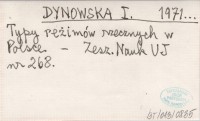 DYNOWSKA I. 1971...
Typy reżimów rzecznych w
Polsce. - Zesz. Nauk UJ
nr 268.